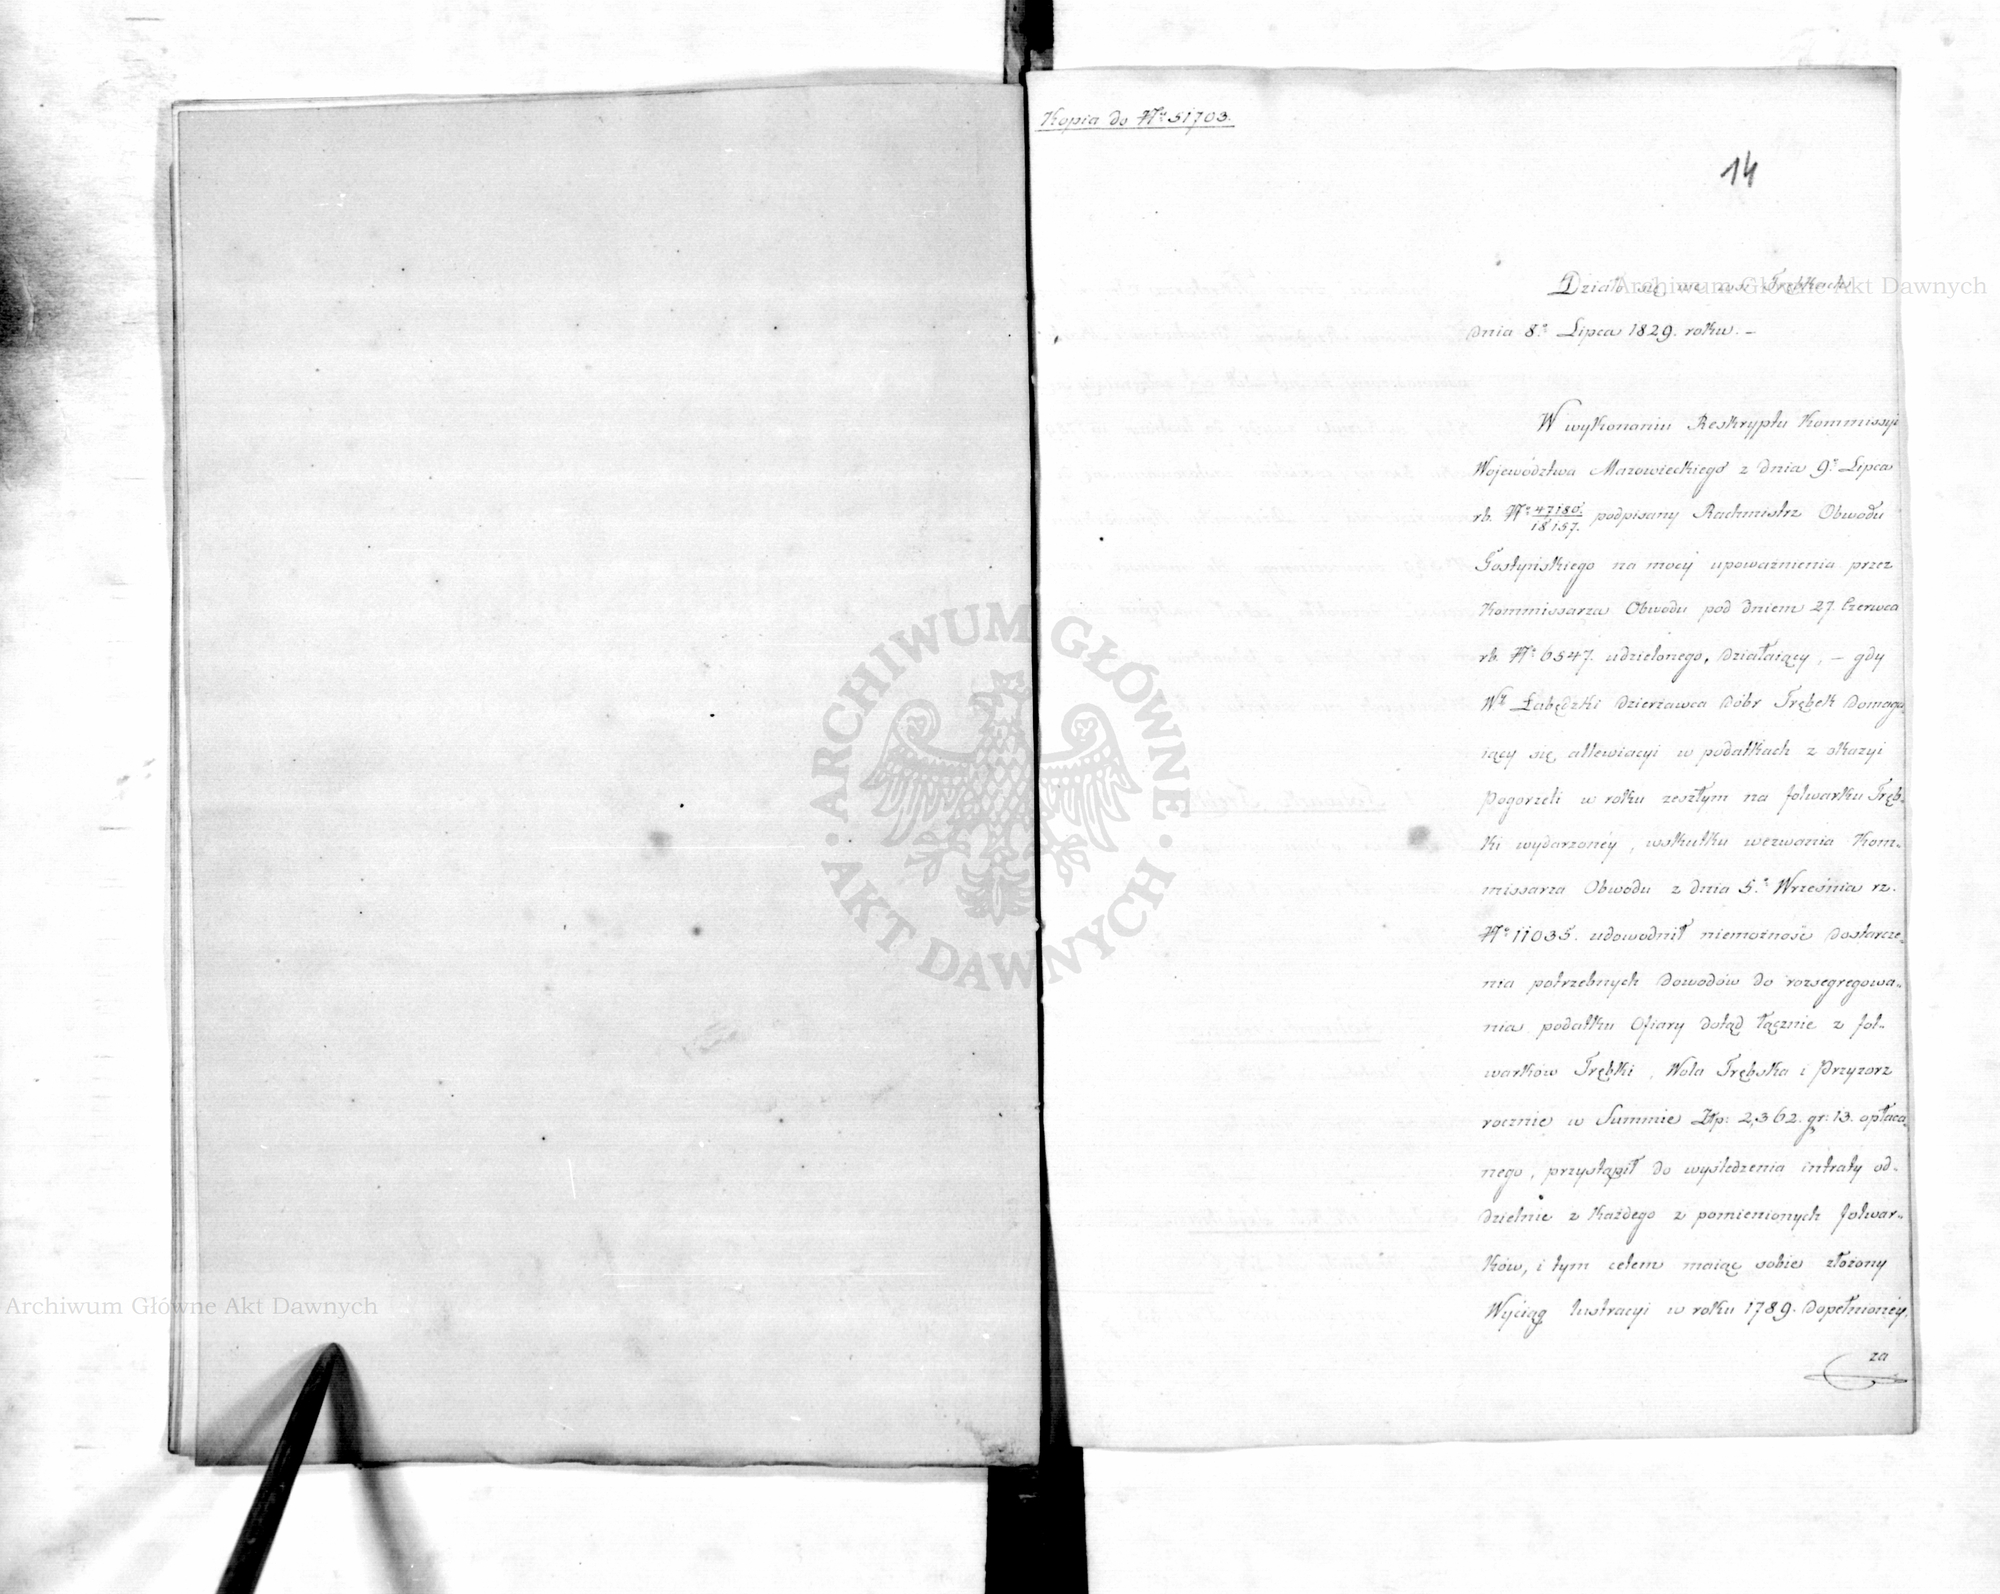 Kopia do Nr 51703.
14
Działo się we wsi Trębkach
dnia 8.º Lipca 1829. roku. –
W wykonaniu Reskryptu Kommissyi
Województwa Mazowieckiego z dnia 9.º Lipca
rb. Nr 47180./18157. podpisany Rachmistrz Obwodu
Gostyńskiego na mocy upoważnienia przez
Kommissarza Obwodu pod dniem 27. Czerwca
rb. Nr 6547. udzielonego, działaiący, – gdy
Wy Łabędzki dzierżawca dóbr Trębek domaga„
iący się allewiacyi w podatkach z okazyi
Pogorzeli w roku zeszłym na folwarku Tręb„
ki wydarzonéy, wskutku wezwania Kom„
missarza Obwodu z dnia 5.º Września rz.
Nr 11035. udowodnił niemożność dostarcze„
nia potrzebnych dowodów do rozsegregowa„
nia podatku Ofiary dotąd łącznie z fol„
warków Trębki, Wola Trębska i Przyzorz
rocznie w Summie Złp: 2,362. gr: 13. opłaca„
nego, przystąpił do wyśledzenia intraty od„
dzielnie z każdego z pomienionych folwar„
ków, i tym celem maiąc sobie złożony
Wyciąg lustracyi w roku 1789. dopełnionéy.
za
Archiwum Główne Akt Dawnych
Archiwum Główne Akt Dawnych
ARCHIWUM GŁÓWNE · AKT DAWNYCH ·